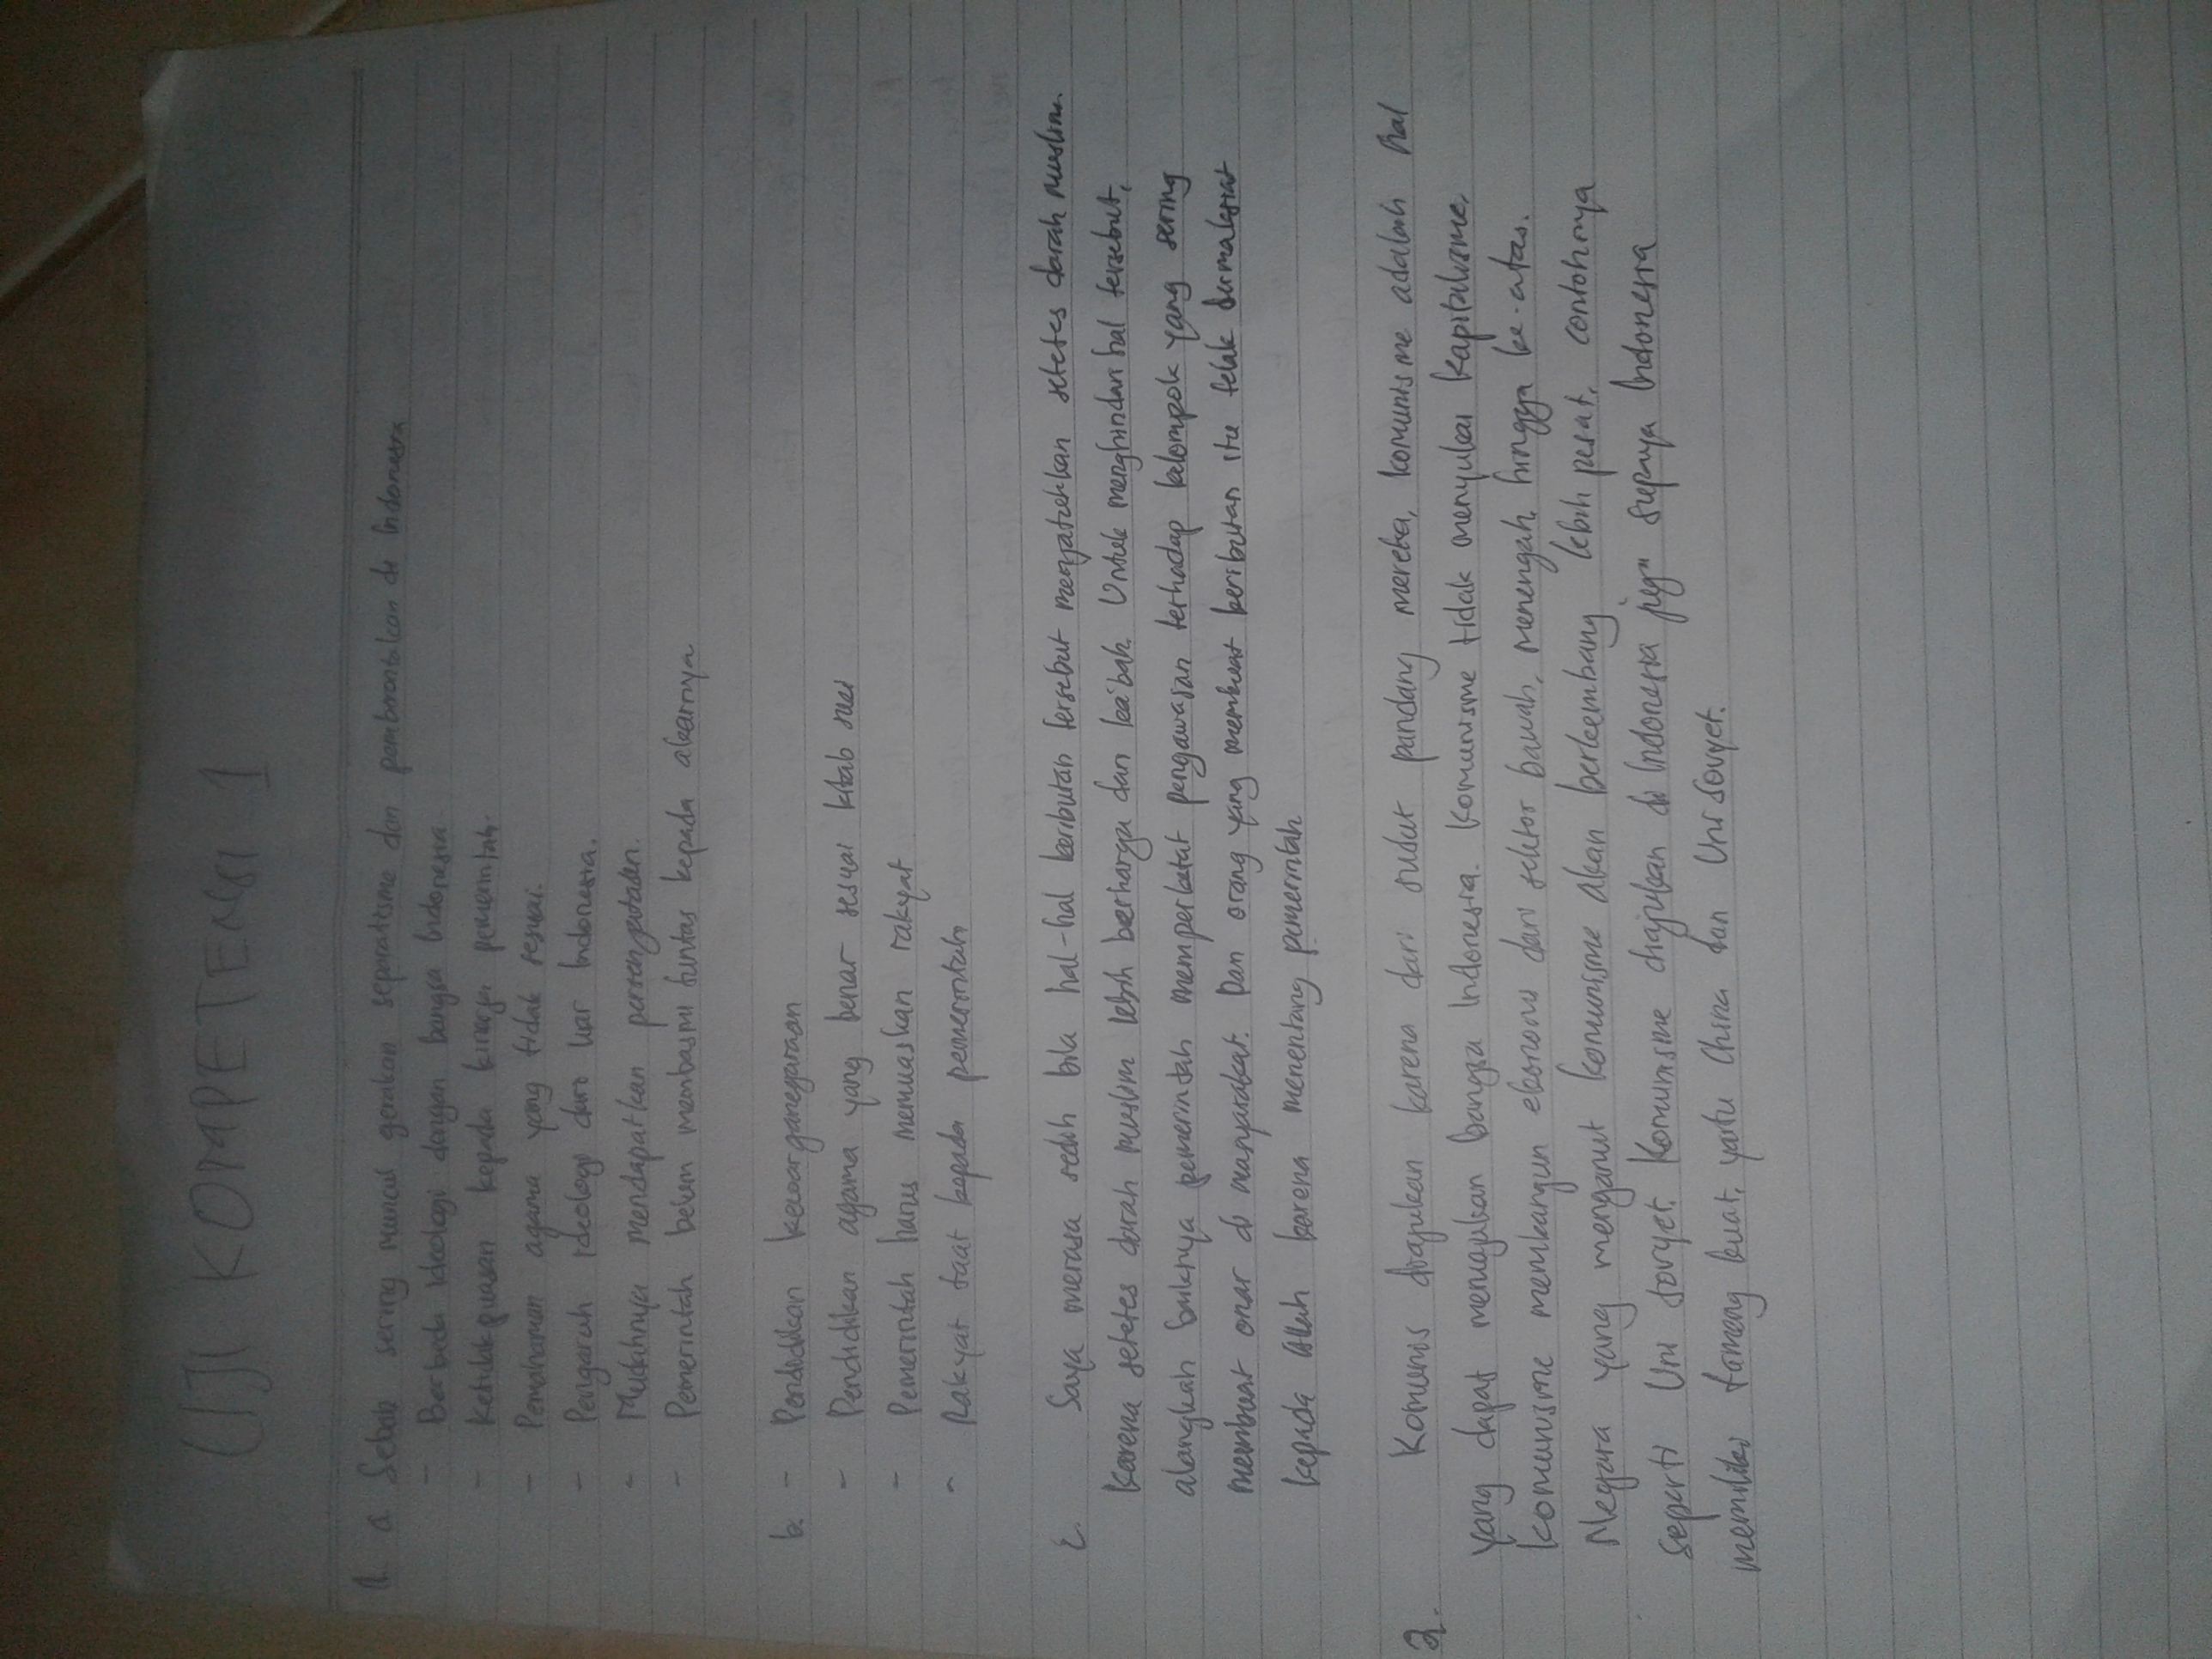 UJI KOMPETENSI 1
1. a Sebab sering muncul gerakan separatisme dan pemberontakan di Indonesia
- Berbeda ideologi dengan bangsa Indonesia
- Ketidakpuasan kepada kinerja pemerintah.
- Pemahaman agama yang tidak sesuai.
- Pengaruh ideologi dari luar Indonesia.
- Mudahnya mendapatkan persenjataan.
- Pemerintah belum membasmi tuntas kepada akarnya
b. - Pendidikan kewarganegaraan
- Pendidikan agama yang benar sesuai kitab suci
- Pemerintah harus memuaskan rakyat
- Rakyat taat kepada pemerintah
c. Saya merasa sedih bila hal-hal keributan tersebut menjatuhkan setetes darah muslim.
Karena setetes darah muslim lebih berharga dari ka'bah. Untuk menghindari hal tersebut,
alangkah baiknya pemerintah memperketat pengawasan terhadap kelompok yang sering
membuat onar di masyarakat. Dan orang yang membuat keributan itu telah bermaksiat
kepada Allah karena menentang pemerintah
2. Komunis diajukan karena dari sudut pandang mereka, komunisme adalah hal
yang dapat memajukan bangsa Indonesia. Komunisme tidak menyukai kapitalisme,
komunisme membangun ekonomi dari sektor bawah, menengah, hingga ke-atas.
Negara yang menganut komunisme akan berkembang lebih pesat, contohnya
seperti Uni Sovyet. Komunisme diajukan di Indonesia juga supaya Indonesia
memiliki tameng kuat, yaitu China dan Uni Sovyet.